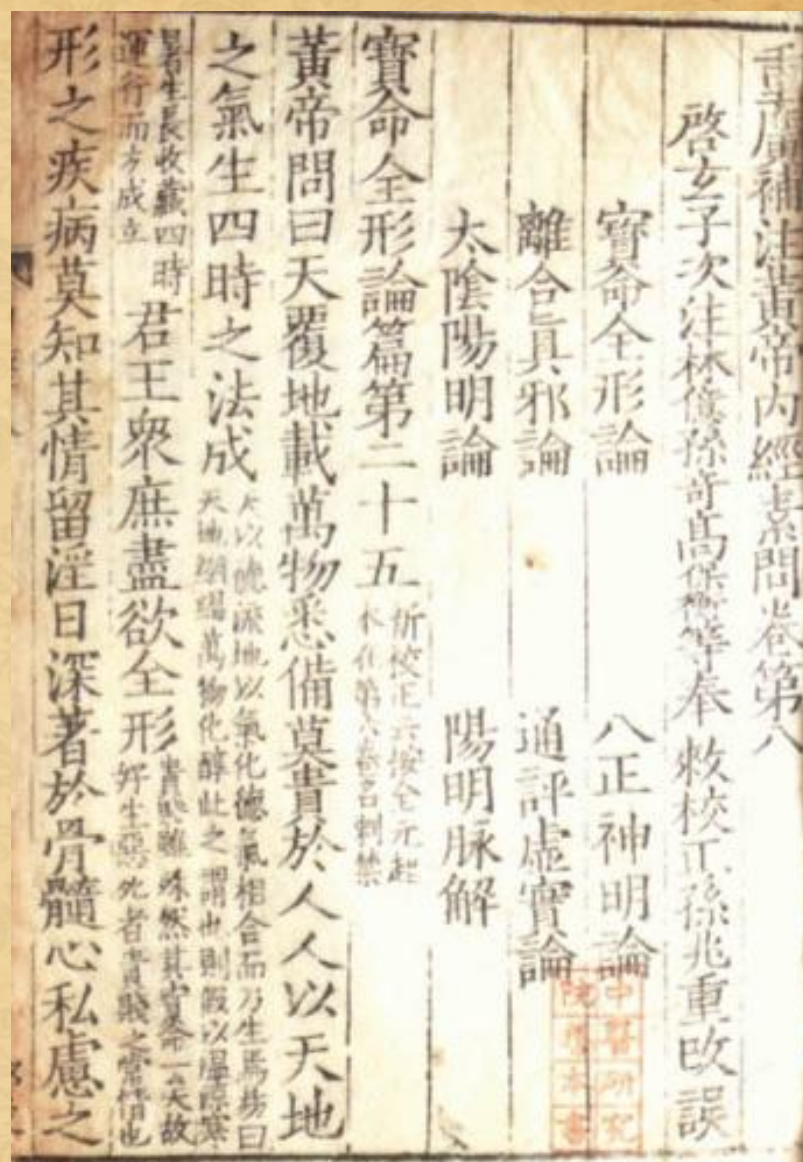 重廣補注黃帝內經素問卷第八
啓玄子次注林億孫奇高保衡等奉敕校正孫兆重改誤
寶命全形論 八正神明論
離合真邪論 通評虛實論
太陰陽明論 陽明脉解
寶命全形論篇第二十五
新校正云按全元起
本在第六卷名刺禁
黃帝問曰天覆地載萬物悉備莫貴於人人以天地
之氣生四時之法成
天以德流地以氣化德氣相合而乃生焉易曰
天地絪縕萬物化醇此之謂也則假以溫涼寒
暑生長收藏四時
運行而方成立
君王衆庶盡欲全形
貴賤雖殊然其寶命一矣故
好生惡死者貴賤之常情也
形之疾病莫知其情留淫日深著於骨髓心私慮之
中醫研究
院
本書